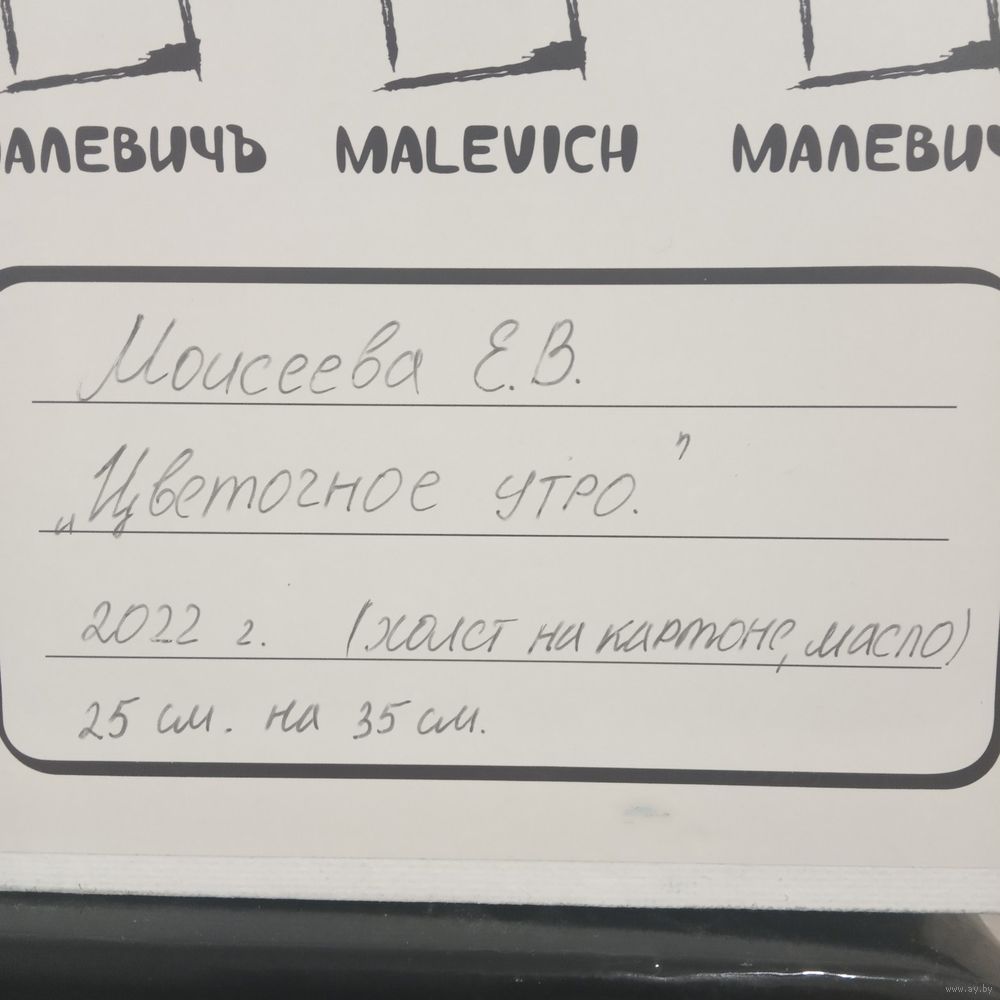 МАЛЕВИЧЪ MALEVICH МАЛЕВИЧ
Моисеева Е.В.
„Цветочное утро."
2022 г. (холст на картоне, масло)
25 см. на 35 см.
www.ay.by